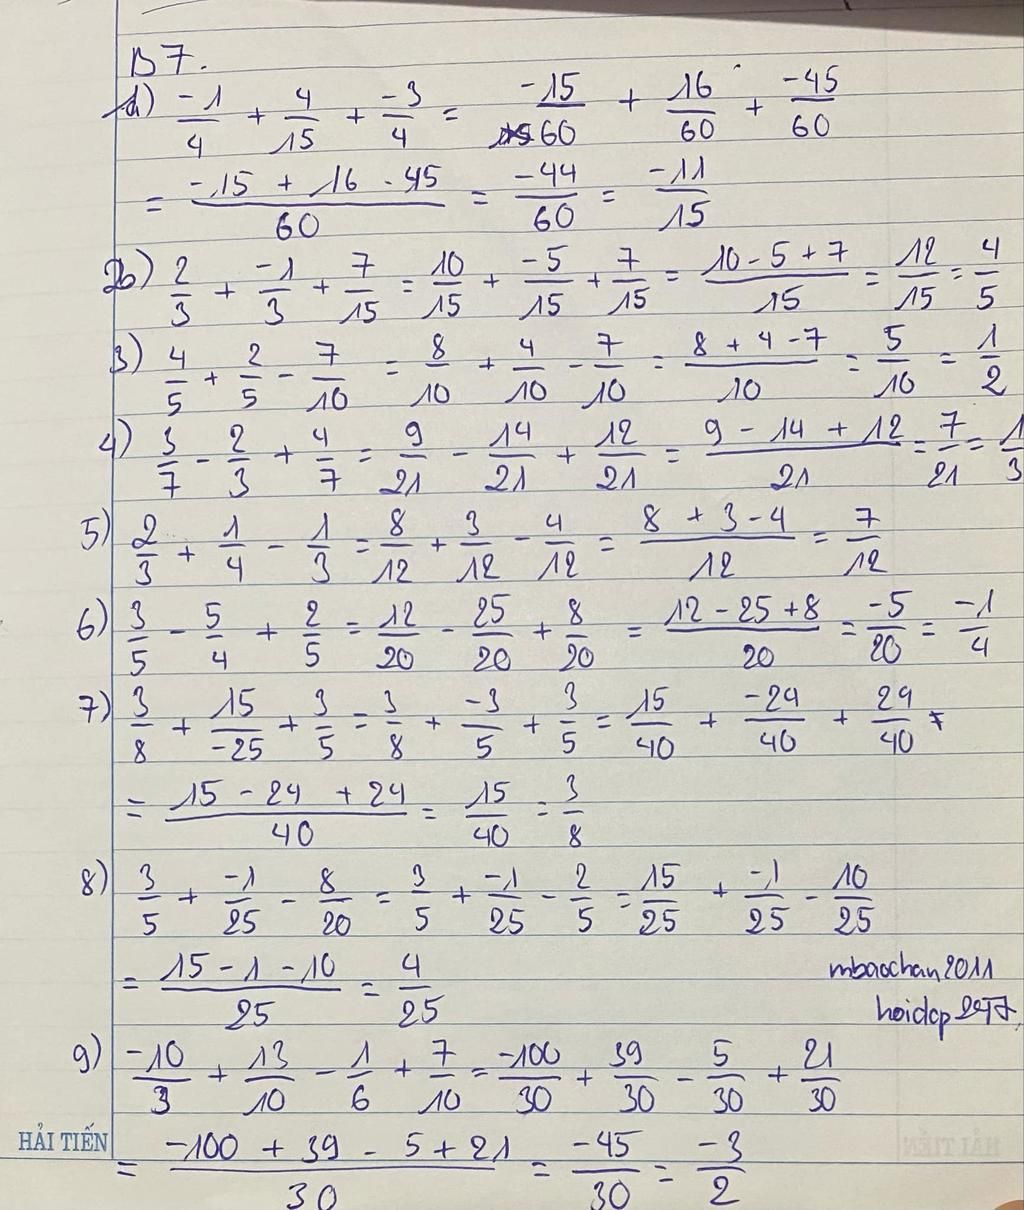 B7.
1) -1/4 + 4/15 + -3/4 = -15/60 + 16/60 + -45/60
= (-15 + 16 - 45)/60 = -44/60 = -11/15
2) 2/3 + -1/3 + 7/15 = 10/15 + -5/15 + 7/15 = (10 - 5 + 7)/15 = 12/15 = 4/5
3) 4/5 + 2/5 - 7/10 = 8/10 + 4/10 - 7/10 = (8 + 4 - 7)/10 = 5/10 = 1/2
4) 3/7 - 2/3 + 4/7 = 9/21 - 14/21 + 12/21 = (9 - 14 + 12)/21 = 7/21 = 1/3
5) 2/3 + 1/4 - 1/3 = 8/12 + 3/12 - 4/12 = (8 + 3 - 4)/12 = 7/12
6) 3/5 - 5/4 + 2/5 = 12/20 - 25/20 + 8/20 = (12 - 25 + 8)/20 = -5/20 = -1/4
7) 3/8 + 15/-25 + 3/5 = 3/8 + -3/5 + 3/5 = 15/40 + -24/40 + 24/40
= (15 - 24 + 24)/40 = 15/40 = 3/8
8) 3/5 + -1/25 - 8/20 = 3/5 + -1/25 - 2/5 = 15/25 + -1/25 - 10/25
= (15 - 1 - 10)/25 = 4/25
mbaochan2011
9) -10/3 + 13/10 - 1/6 + 7/10 = -100/30 + 39/30 - 5/30 + 21/30
= (-100 + 39 - 5 + 21)/30 = -45/30 = -3/2
HẢI TIẾN